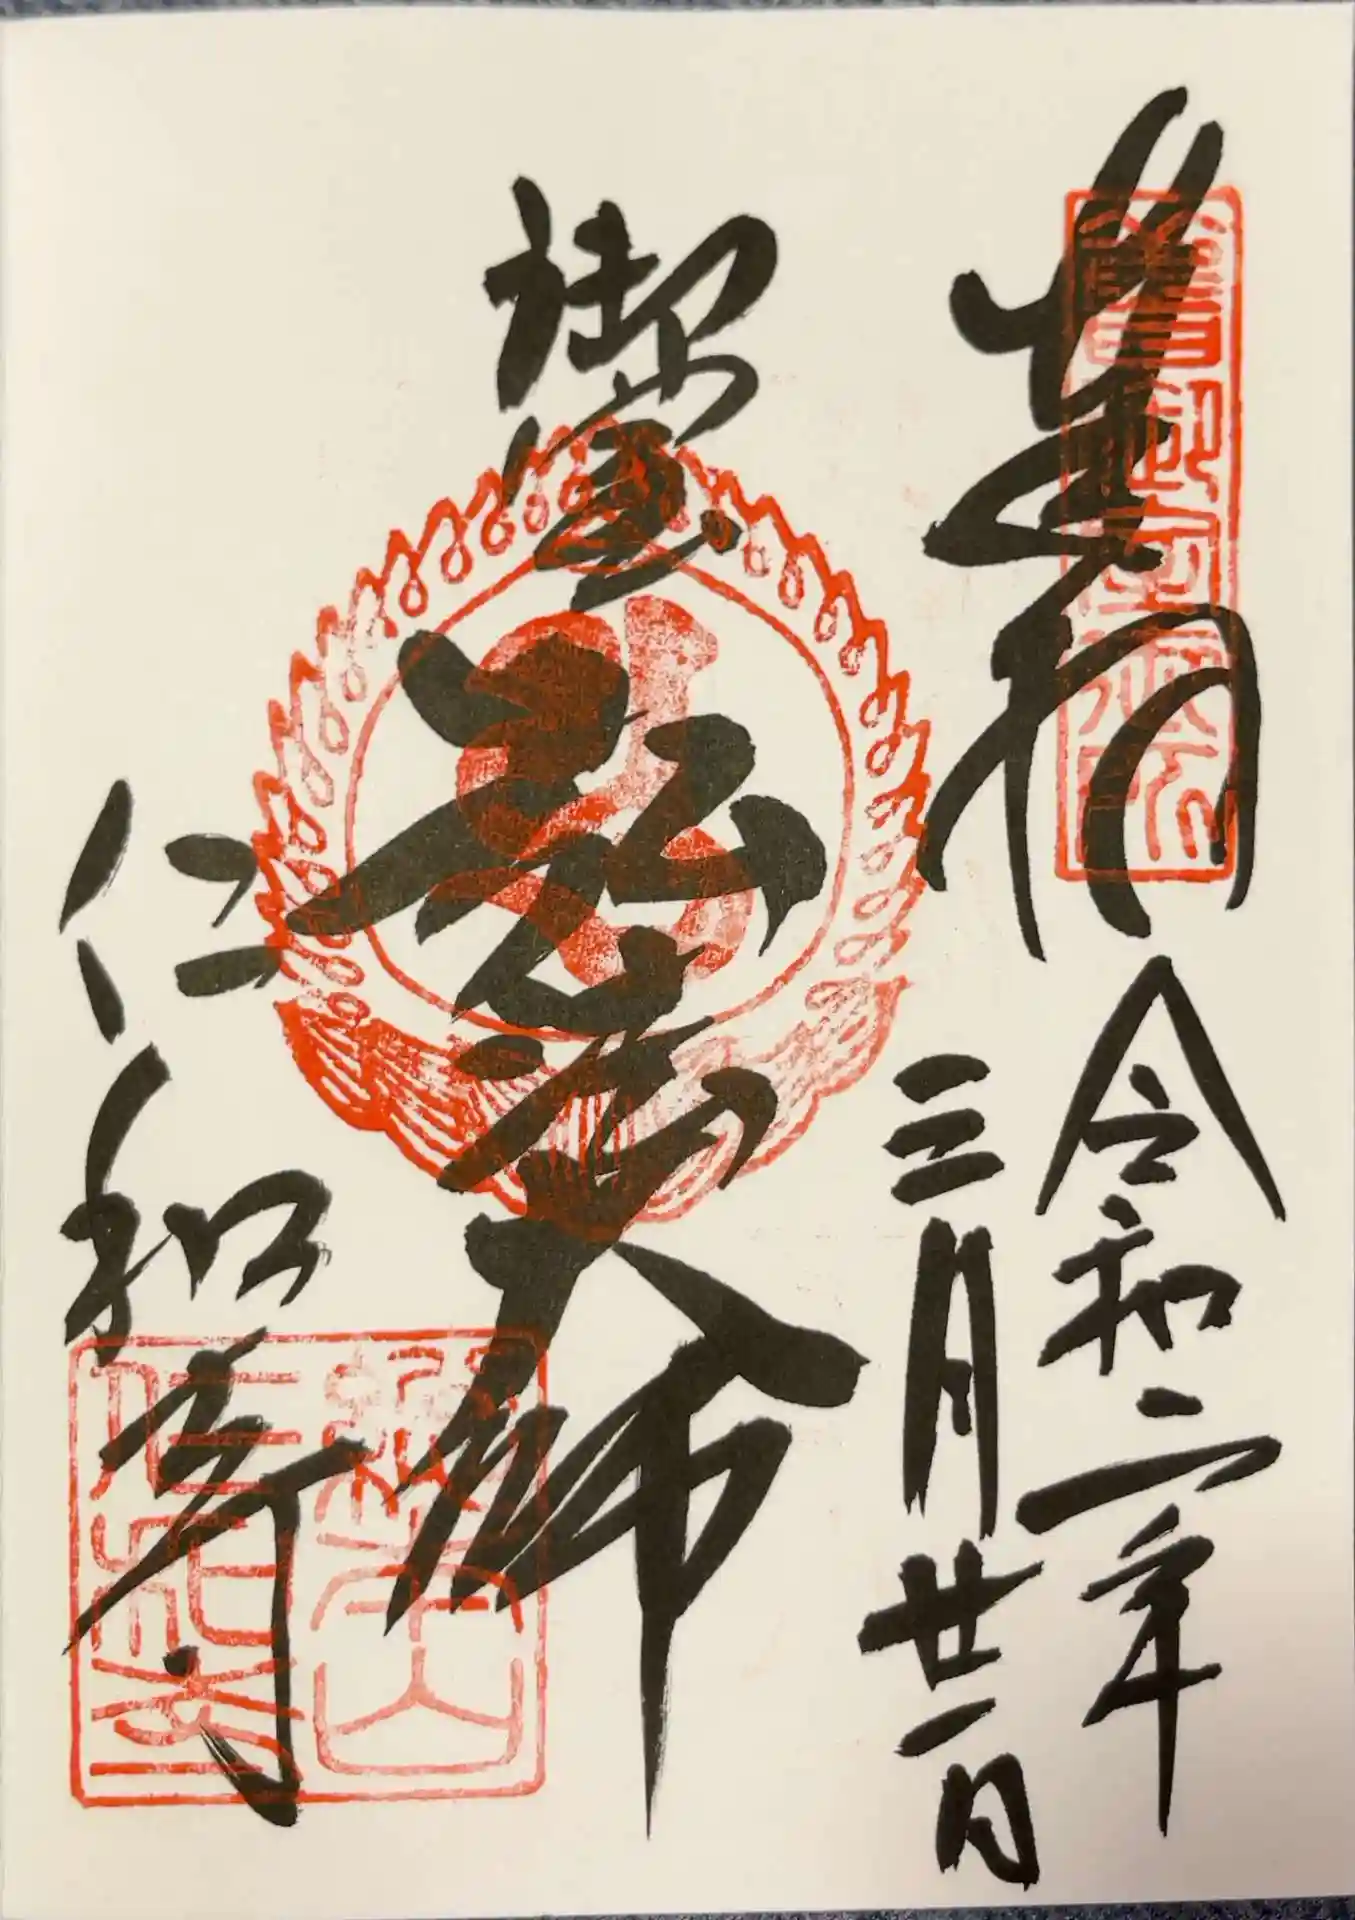 奉拝
令和二年
三月廿一日
御室
弘法大師
仁和寺